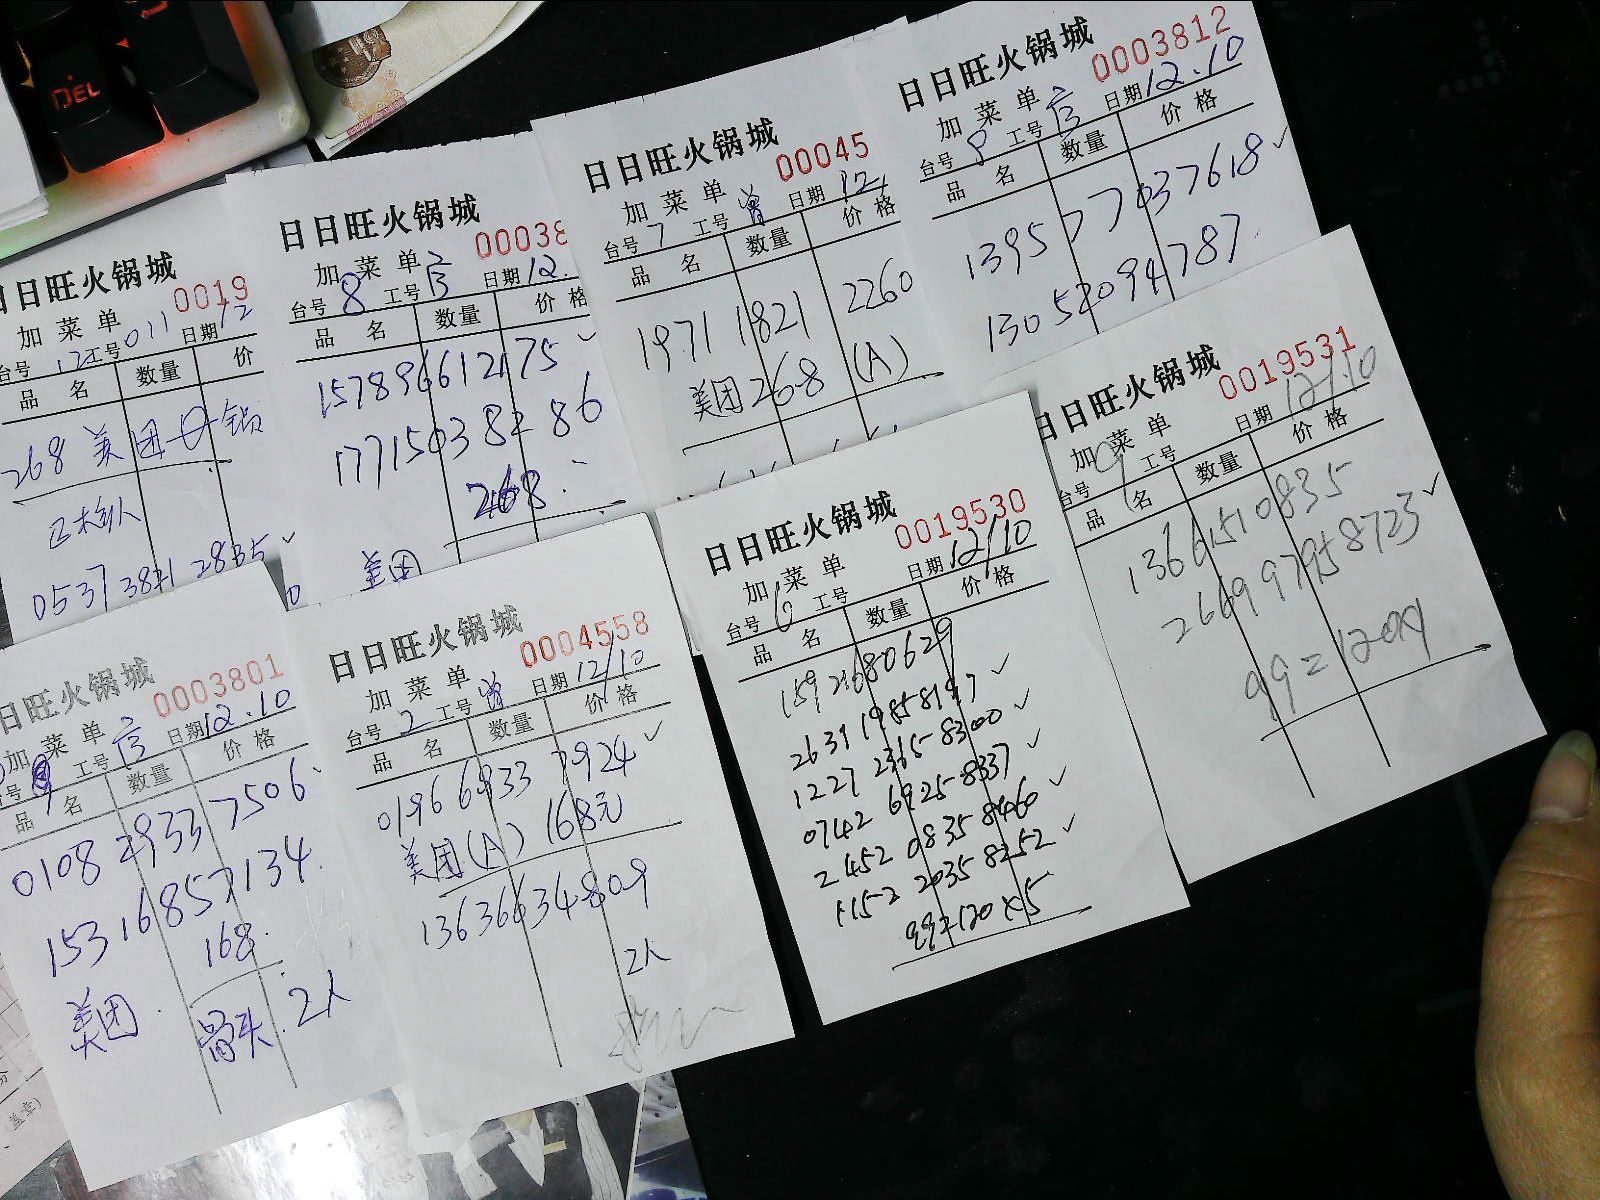 DEL
日日旺火锅城
0019
加菜单
台号 12 工号 011 日期 12
品名 数量 价
268 美团 锅
0537 3821 2835 ✓
日日旺火锅城
00038
加菜单
台号 8 工号 日期 12.
品名 数量 价格
157896612175 ✓
177150382 86
268.
美团
日日旺火锅城
00045
加菜单
台号 7 工号 曾 日期 12/
品名 数量 价格
1971 1821 2260
美团 268 (A)
日日旺火锅城
0003812
加菜单
台号 8 工号 日期 12.10
品名 数量 价格
1395 77037618 ✓
130 52094787.
日日旺火锅城
0003801
加菜单
台号 9 工号 日期 12.10
品名 数量 价格
0108 2933 7506.
153 16857134.
168.
美团. 骨头. 2人
日日旺火锅城
0004558
加菜单
台号 2 工号 曾 日期 12/10
品名 数量 价格
0196 6933 7924 ✓
美团(A) 168元
13636634809
2人
日日旺火锅城
0019530
加菜单
台号 6 工号 日期 12/10
品名 数量 价格
15921680629
2631 1985 8197 ✓
1227 2365 8300 ✓
0742 6925 8337 ✓
2452 0835 8460 ✓
1152 2035 8252 ✓
99=120×5
日日旺火锅城
0019531
加菜单
台号 9 工号 日期 12/10
品名 数量 价格
13661510835
2669 9795 8723 ✓
99=120
盖章)